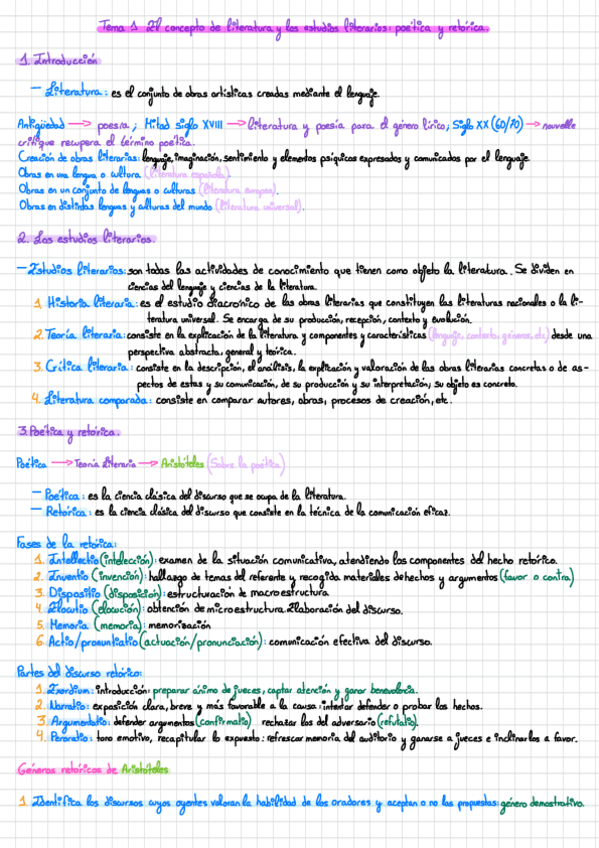 Tema 1 El concepto de literatura y los estudios literarios: poética y retórica.
1. Introducción
— Literatura: es el conjunto de obras artísticas creadas mediante el lenguaje.
Antigüedad → poesía; Mitad siglo XVIII → literatura y poesía para el género lírico; Siglo XX (60/70) → nouvelle
critique recupera el término poética.
Creación de obras literarias: lenguaje, imaginación, sentimiento y elementos psíquicos expresados y comunicados por el lenguaje
Obras en una lengua o cultura (literatura española).
Obras en un conjunto de lenguas o culturas (literatura europea).
Obras en distintas lenguas y culturas del mundo (literatura universal).
2. Los estudios literarios.
— Estudios literarios: son todas las actividades de conocimiento que tienen como objeto la literatura. Se dividen en
ciencias del lenguaje y ciencias de la literatura.
1. Historia literaria: es el estudio diacrónico de las obras literarias que constituyen las literaturas nacionales o la li-
teratura universal. Se encarga de su producción, recepción, contexto y evolución.
2. Teoría literaria: consiste en la explicación de la literatura y componentes y características (lenguaje, contexto, géneros, etc) desde una
perspectiva abstracta, general y teórica.
3. Crítica literaria: consiste en la descripción, el análisis, la explicación y valoración de las obras literarias concretas o de as-
pectos de estas y su comunicación, de su producción y su interpretación; su objeto es concreto.
4. Literatura comparada: consiste en comparar autores, obras, procesos de creación, etc.
3. Poética y retórica.
Poética → Teoría literaria → Aristóteles (Sobre la poética)
— Poética: es la ciencia clásica del discurso que se ocupa de la literatura.
— Retórica: es la ciencia clásica del discurso que consiste en la técnica de la comunicación eficaz.
Fases de la retórica:
1. Intellectio (intelección): examen de la situación comunicativa, atendiendo los componentes del hecho retórico.
2. Inventio (invención): hallazgo de temas del referente y recogida materiales de hechos y argumentos (favor o contra)
3. Dispositio (disposición): estructuración de macroestructura
4. Elocutio (elocución): obtención de microestructura. Elaboración del discurso.
5. Memoria (memoria): memorización
6. Actio/pronuntiatio (actuación/pronunciación): comunicación efectiva del discurso.
Partes del discurso retórico:
1. Exordium: introducción: preparar ánimo de jueces, captar atención y ganar benevolencia.
2. Narratio: exposición clara, breve y más favorable a la causa: intentar defender o probar los hechos.
3. Argumentatio: defender argumentos (confirmatio) rechazar los del adversario (refutatio).
4. Peroratio: tono emotivo, recapitular lo expuesto: refrescar memoria del auditorio y ganarse a jueces e inclinarlos a favor.
Géneros retóricos de Aristóteles
1. Identifica los discursos cuyos oyentes valoran la habilidad de los oradores y aceptan o no las propuestas: género demostrativo.